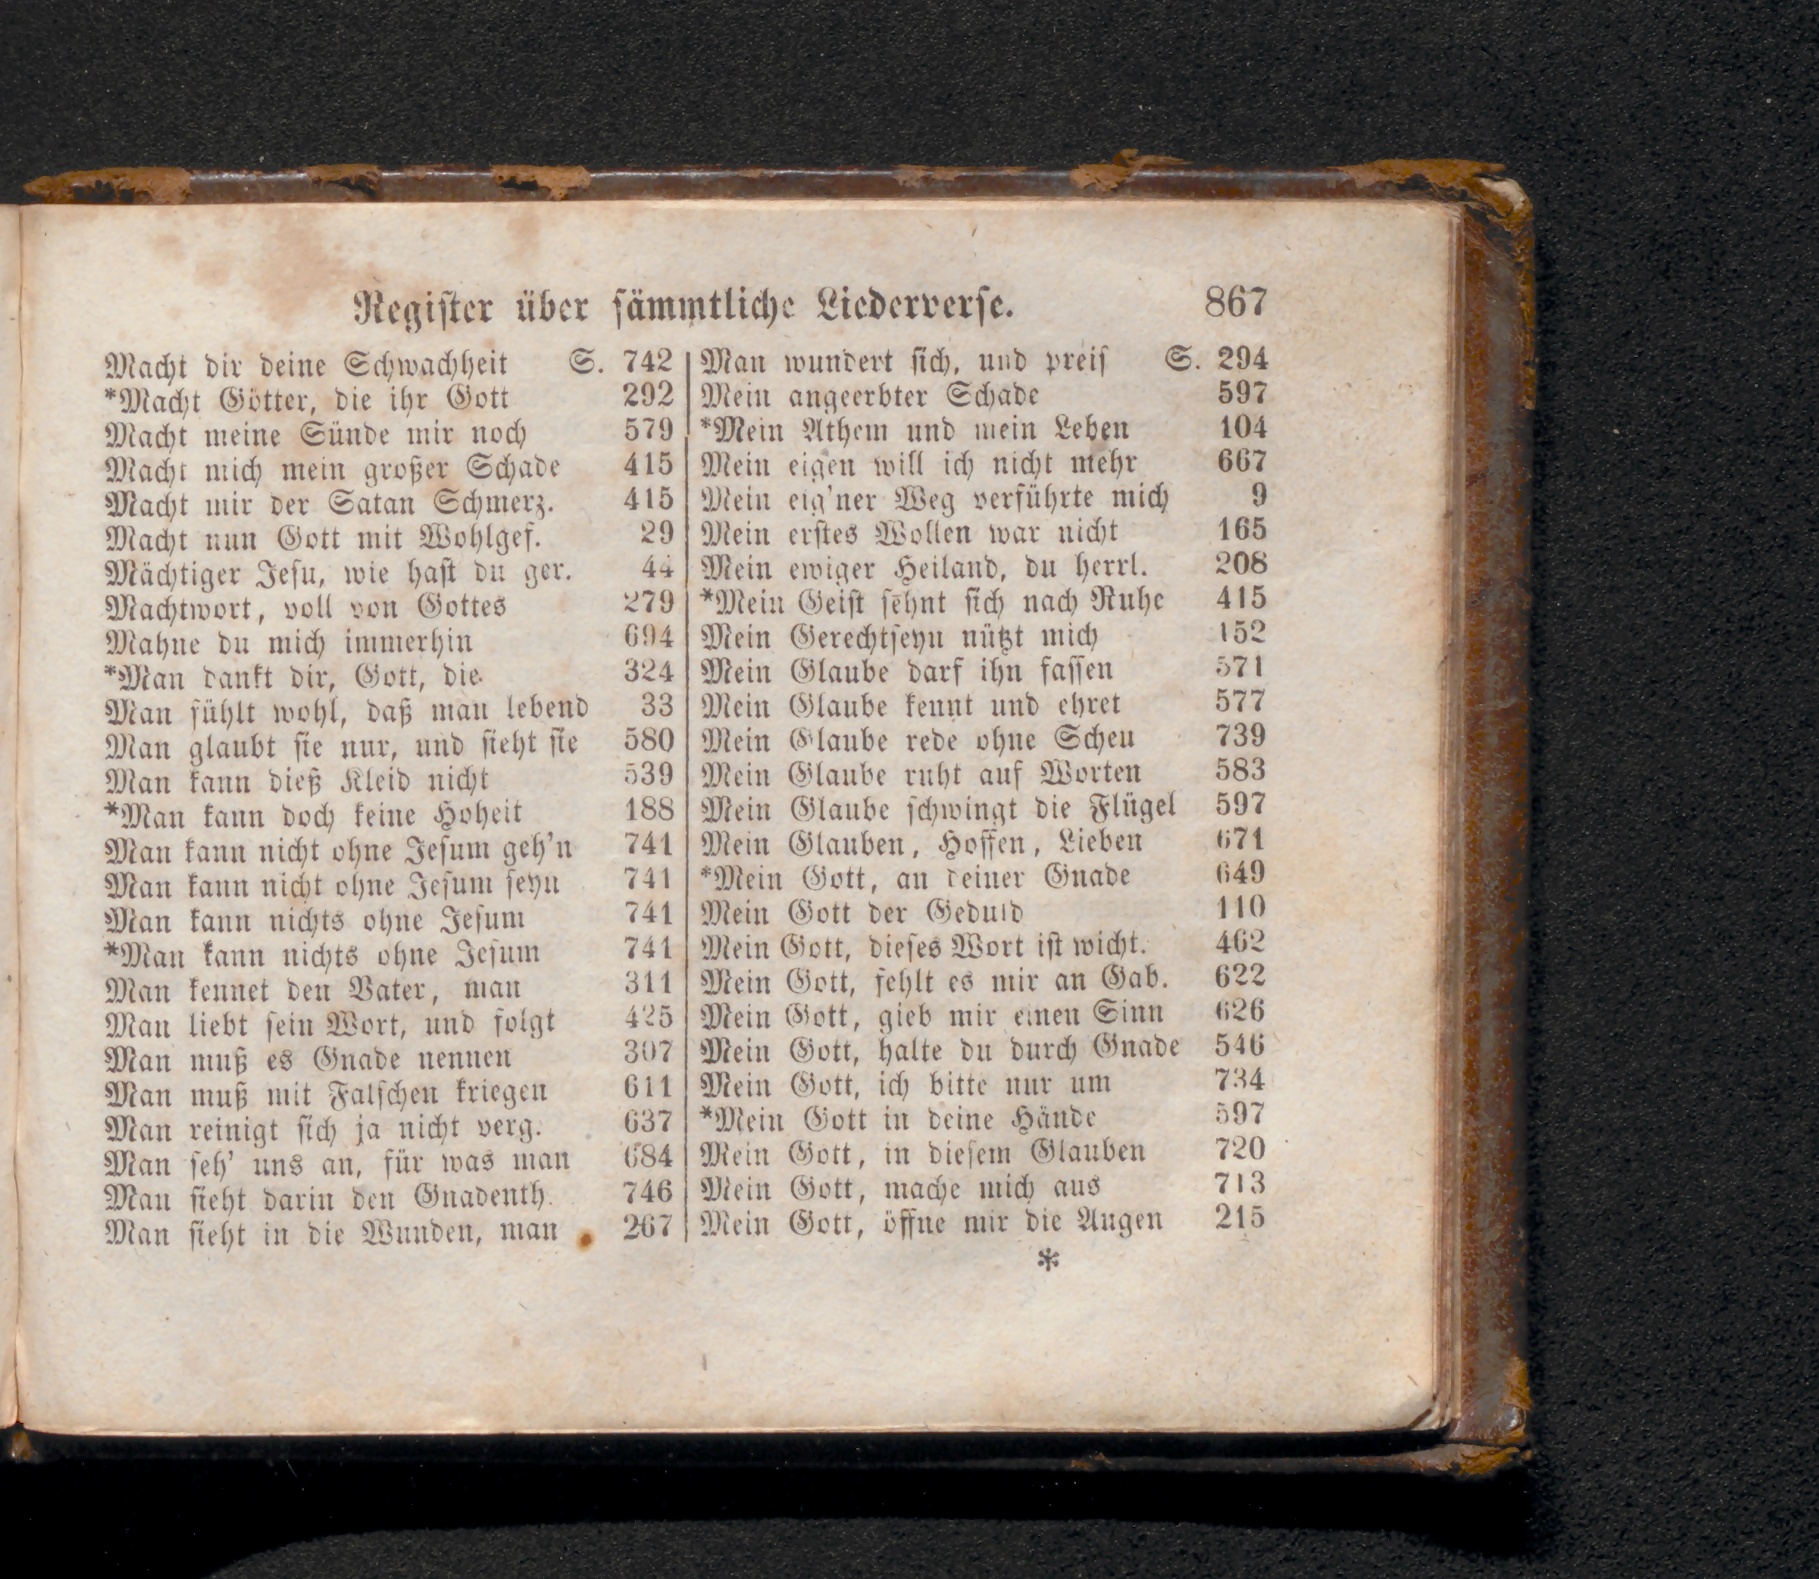 Register über sämmtliche Liederverse. 867
Macht dir deine Schwachheit S. 742
*Macht Götter, die ihr Gott 292
Macht meine Sünde mir noch 579
Macht mich mein großer Schade 415
Macht mir der Satan Schmerz. 415
Macht nun Gott mit Wohlgef. 29
Mächtiger Jesu, wie hast du ger. 44
Machtwort, voll von Gottes 279
Mahne du mich immerhin 694
*Man dankt dir, Gott, die 324
Man fühlt wohl, daß man lebend 33
Man glaubt sie nur, und sieht sie 580
Man kann dieß Kleid nicht 539
*Man kann doch keine Hoheit 188
Man kann nicht ohne Jesum geh'n 741
Man kann nicht ohne Jesum seyn 741
Man kann nichts ohne Jesum 741
*Man kann nichts ohne Jesum 741
Man kennet den Vater, man 311
Man liebt sein Wort, und folgt 425
Man muß es Gnade nennen 307
Man muß mit Falschen kriegen 611
Man reinigt sich ja nicht verg. 637
Man seh' uns an, für was man 684
Man sieht darin den Gnadenth. 746
Man sieht in die Wunden, man 267
Man wundert sich, und preis S. 294
Mein angeerbter Schade 597
*Mein Athem und mein Leben 104
Mein eigen will ich nicht mehr 667
Mein eig'ner Weg verführte mich 9
Mein erstes Wollen war nicht 165
Mein ewiger Heiland, du herrl. 208
*Mein Geist sehnt sich nach Ruhe 415
Mein Gerechtseyn nützt mich 152
Mein Glaube darf ihn fassen 571
Mein Glaube kennt und ehret 577
Mein Glaube rede ohne Scheu 739
Mein Glaube ruht auf Worten 583
Mein Glaube schwingt die Flügel 597
Mein Glauben, Hoffen, Lieben 671
*Mein Gott, an deiner Gnade 649
Mein Gott der Geduld 110
Mein Gott, dieses Wort ist wicht. 462
Mein Gott, fehlt es mir an Gab. 622
Mein Gott, gieb mir einen Sinn 626
Mein Gott, halte du durch Gnade 546
Mein Gott, ich bitte nur um 734
*Mein Gott in deine Hände 597
Mein Gott, in diesem Glauben 720
Mein Gott, mache mich aus 713
Mein Gott, öffne mir die Augen 215
*